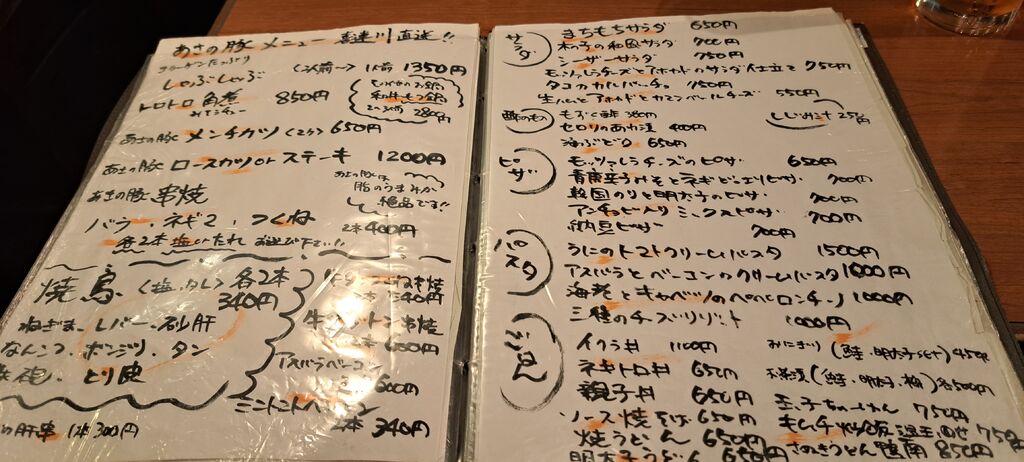 あさの豚 メニュー 喜連川直送!!
コラーゲンたっぷり
しゃぶしゃぶ 〈2人前〜〉 1人前 1350円
トロトロ 角煮 850円
2800円
あさの豚 メンチカツ〈2ケ〉 650円
あさの豚 ロースカツorステーキ 1200円
あさの豚は
脂のうまみが
絶品です!!
あさの豚 串焼
バラ・ネギマ・つくね 2本400円
各2本 塩いたれ お選び下さい!!
焼鳥〈塩・タレ〉各2本
340円
ねぎま・レバー・砂肝
なんこつ・ボンジリ・タン
とり皮
肝串 1本300円
串焼
540円
串焼
650円
アスパラベーコン
600円
ミニトマトベーコン
2本 340円
サラダ
まちもちサラダ 650円
木の子の和風サラダ 700円
シーザーサラダ 750円
モッツァレラチーズとアボカドのサラダ仕立て 750円
タコのカルパッチョ 750円
生ハムとアボカドとカマンベールチーズ 550円
酢のもの
もずく酢 380円
セロリのあさ漬 400円
海ぶどう 650円
ピザ
モッツァレラチーズのピザ 650円
青唐辛子みそとネギどっさりピザ 700円
韓国のりと明太子のピザ 700円
アンチョビ入りミックスピザ 700円
納豆ピザー 700円
パスタ
うにのトマトクリームパスタ 1500円
アスパラとベーコンのクリームパスタ 1000円
海老とキャベツのペペロンチーノ 1000円
三種のチーズリゾット 1000円
ごはん
イクラ丼 1100円
ネギトロ丼 650円
親子丼 650円
ソース焼そば 650円
焼うどん 650円
明太子うどん 650円
おにぎり(鮭・明太子set) 450円
お茶漬(鮭・明太・梅)各500円
玉子ちゃーはん 750円
キムチ炒飯温玉のせ 750円
さぬきうどん 鴨南 850円